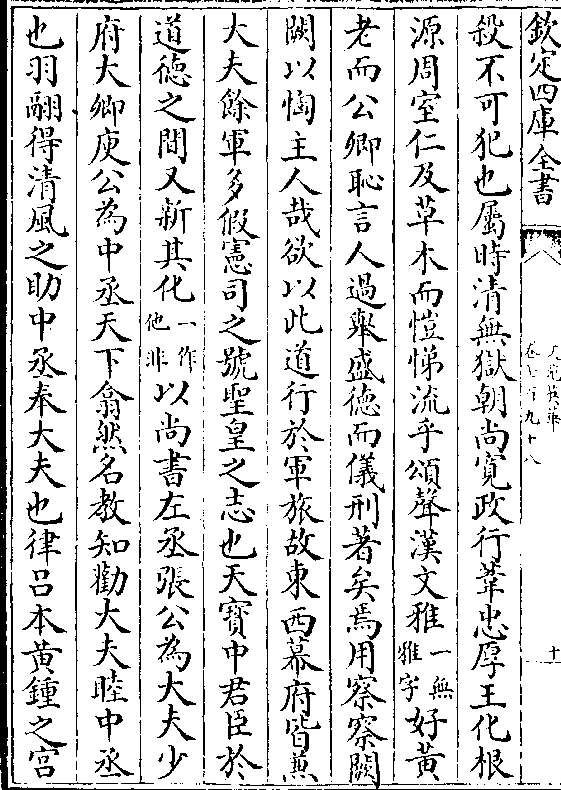 欽定四庫全書
卷七百九十八
十
殺不可犯也屬時清無獄朝尚寛政行葦忠厚王化根
源周室仁及草木而愷悌流乎頌聲漢文雅一無雅字好黄
老而公卿恥言人過舉盛德而儀刑著矣焉用察察闕
闕以恂主人哉欲以此道行於軍旅故東西幕府皆兼
大夫餘軍多假憲司之號聖皇之志也天寳中君臣於
道德之間又新其化一作他非以尚書左丞張公為大夫少
府大卿庾公為中丞天下翕然名教知勸大夫睦中丞
也羽翮得清風之助中丞奉大夫也律吕本黄鍾之宫